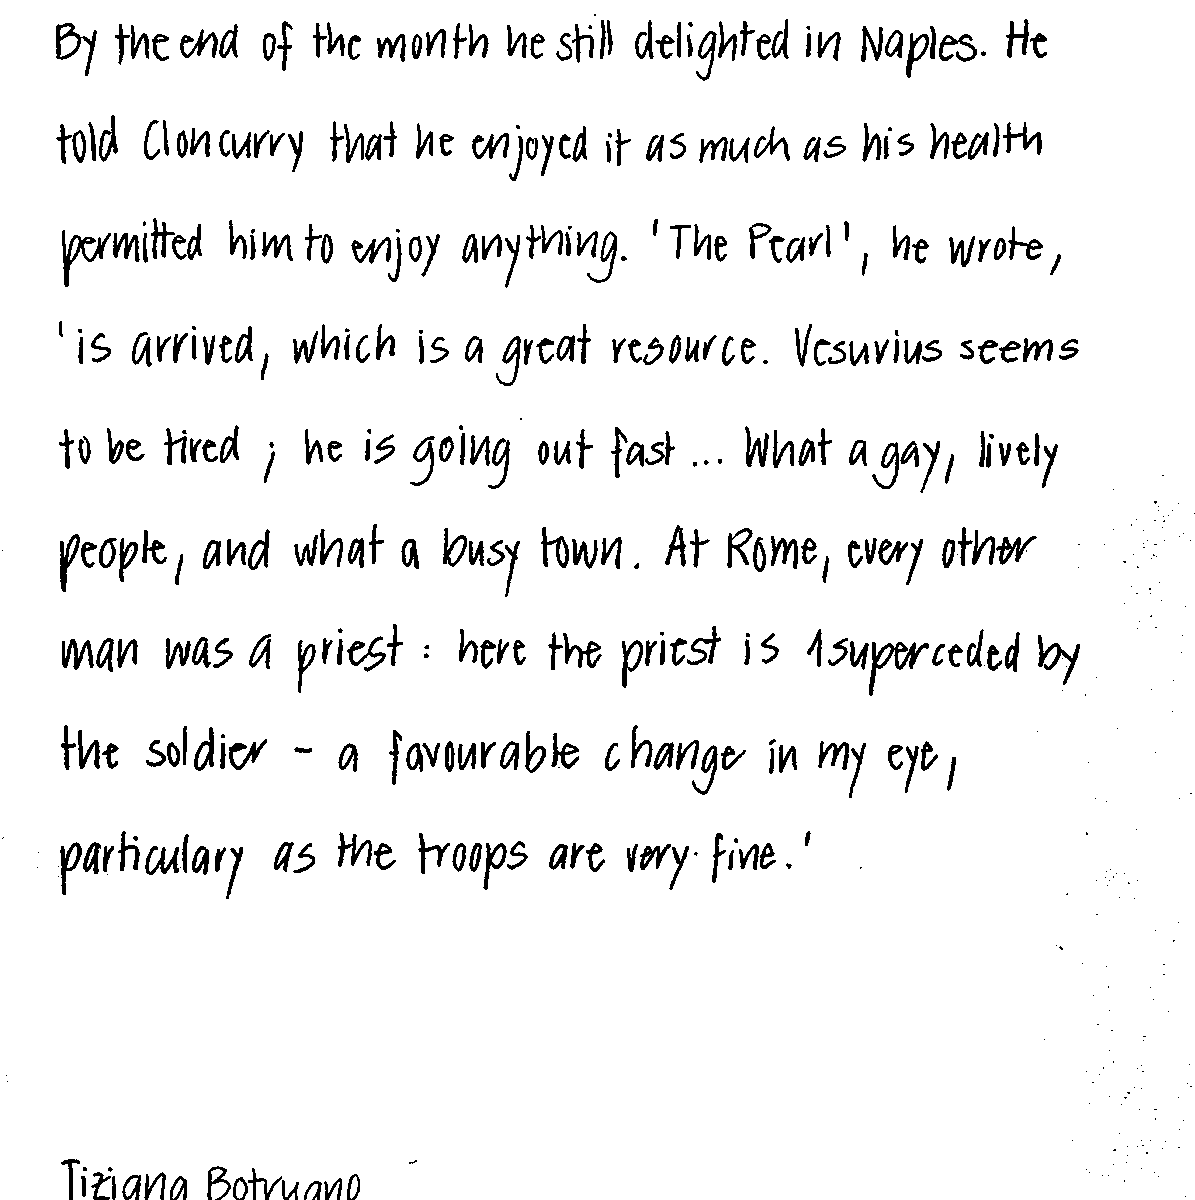 By the end of the month he still delighted in Naples. He
told Cloncurry that he enjoyed it as much as his health
permitted him to enjoy anything. 'The Pearl', he wrote,
'is arrived, which is a great resource. Vesuvius seems
to be tired ; he is going out fast ... What a gay, lively
people, and what a busy town. At Rome, every other
man was a priest : here the priest is 1superceded by
the soldier - a favourable change in my eye,
particulary as the troops are very fine.'
Tiziana Botruano